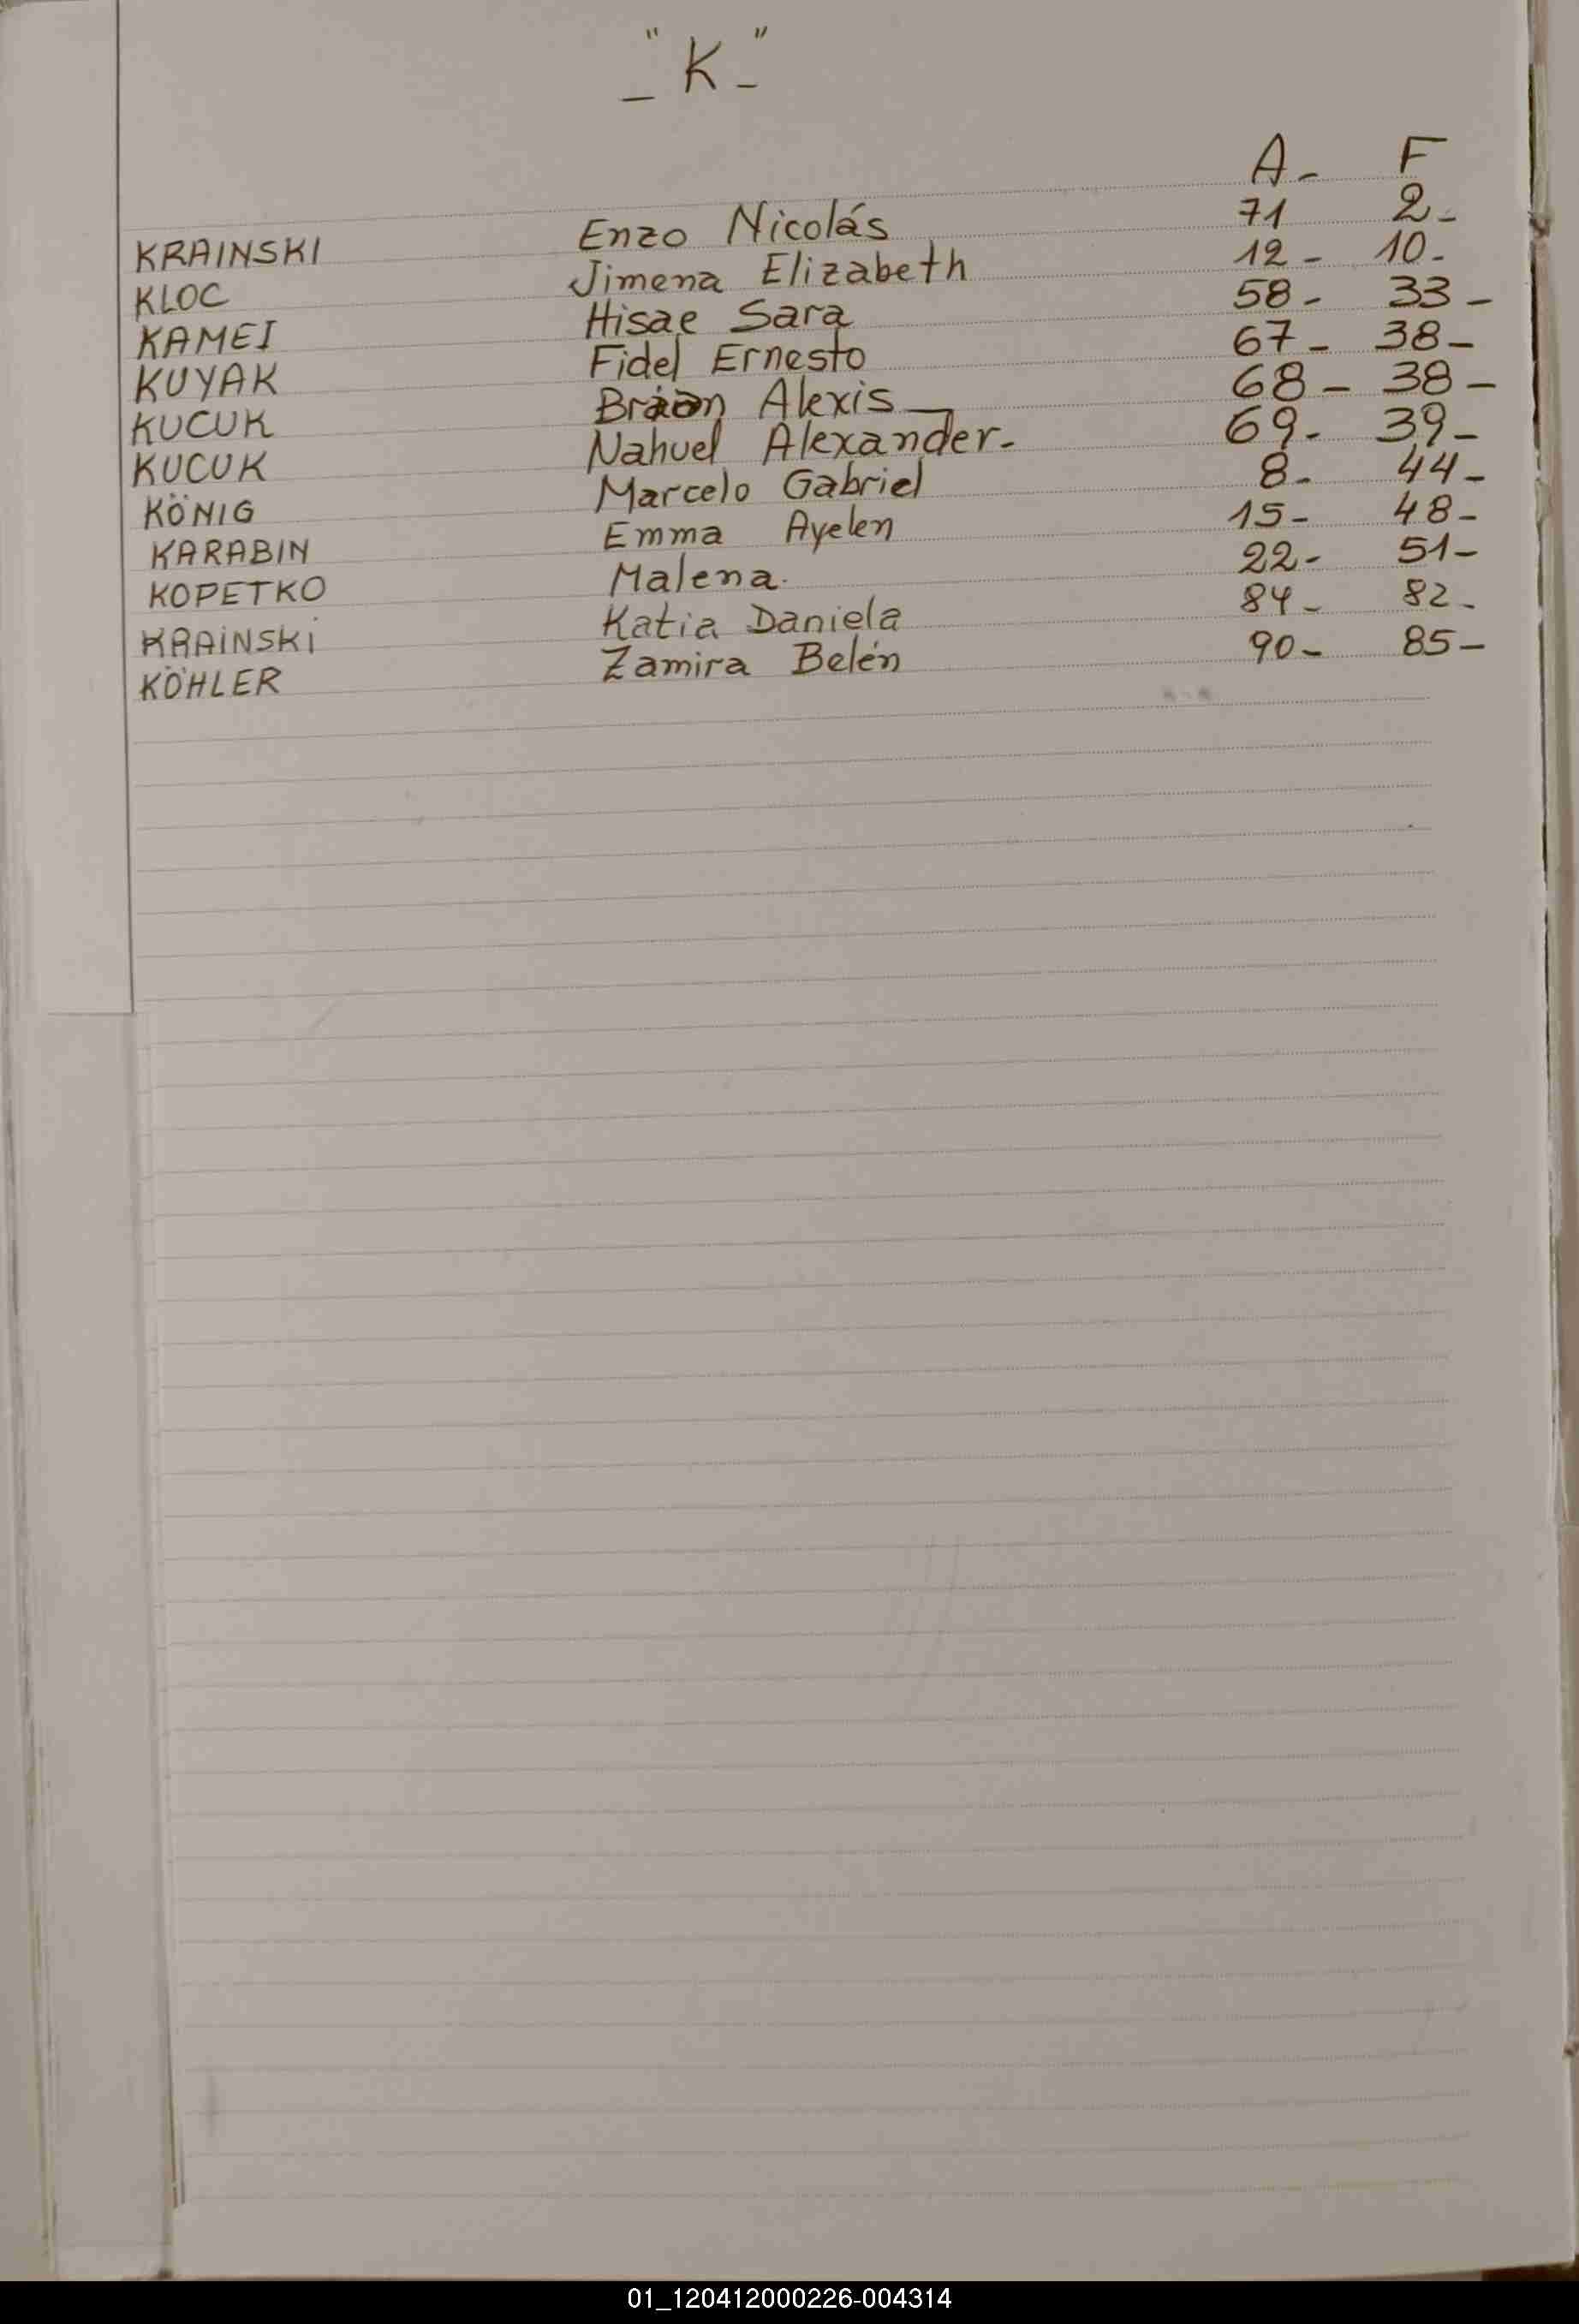 _ "K" _
A_ F
KRAINSKI Enzo Nicolás 71 2_
KLOC Jimena Elizabeth 12_ 10_
KAMEI Hisae Sara 58_ 33_
KUYAK Fidel Ernesto 67_ 38_
KUCUK Alexis 68_ 38_
KUCUK Nahuel Alexander_ 69_ 39_
KÖNIG Marcelo Gabriel 8_ 44_
KARABIN Emma Ayelen 15_ 48_
KOPETKO Malena. 22_ 51_
KRAINSKI Katia Daniela 84_ 82_
KÖHLER Zamira Belén 90_ 85_
01_120412000226-004314